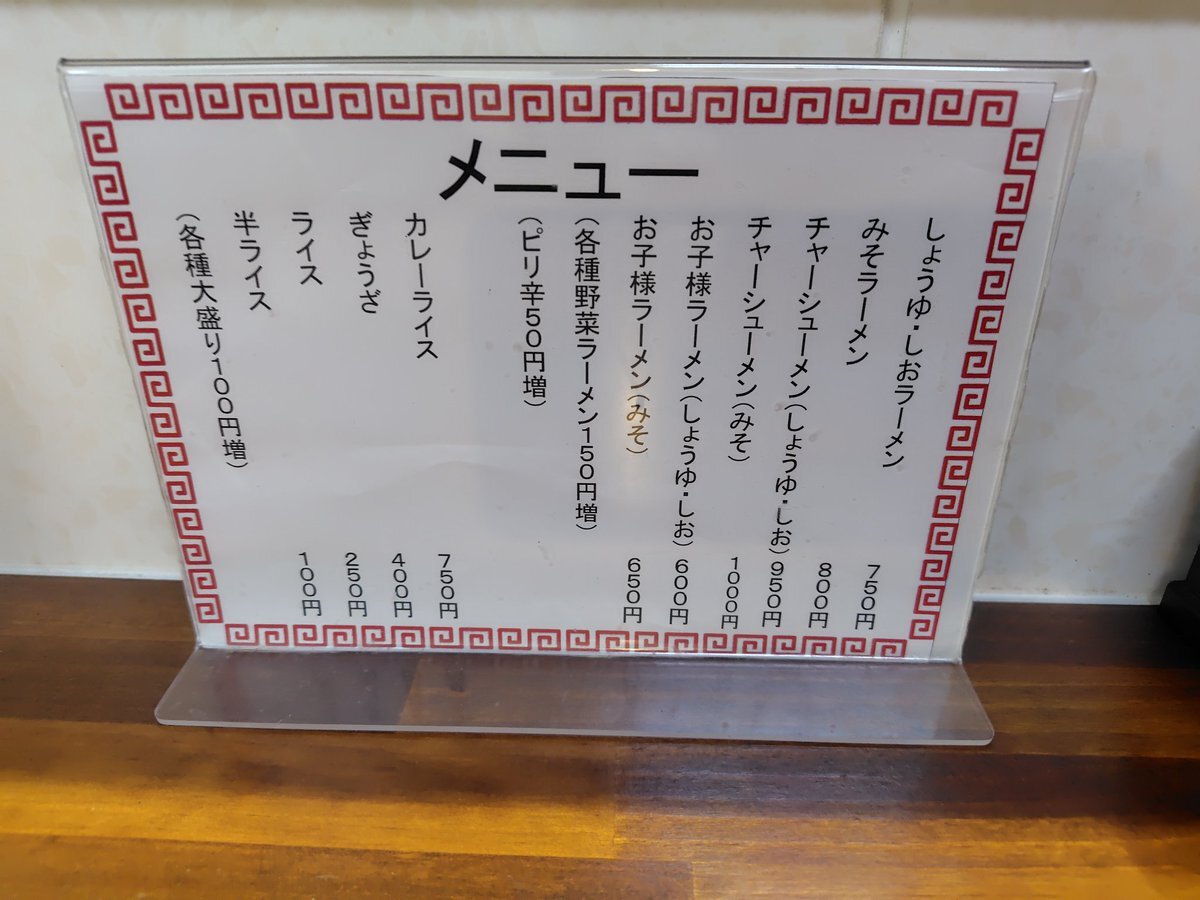 メニュー
しょうゆ・しおラーメン 750円
みそラーメン 800円
チャーシューメン(しょうゆ・しお) 950円
チャーシューメン(みそ) 1000円
お子様ラーメン(しょうゆ・しお) 600円
お子様ラーメン(みそ) 650円
(各種野菜ラーメン150円増)
(ピリ辛50円増)
カレーライス 750円
ぎょうざ 400円
ライス 250円
半ライス 100円
(各種大盛り100円増)